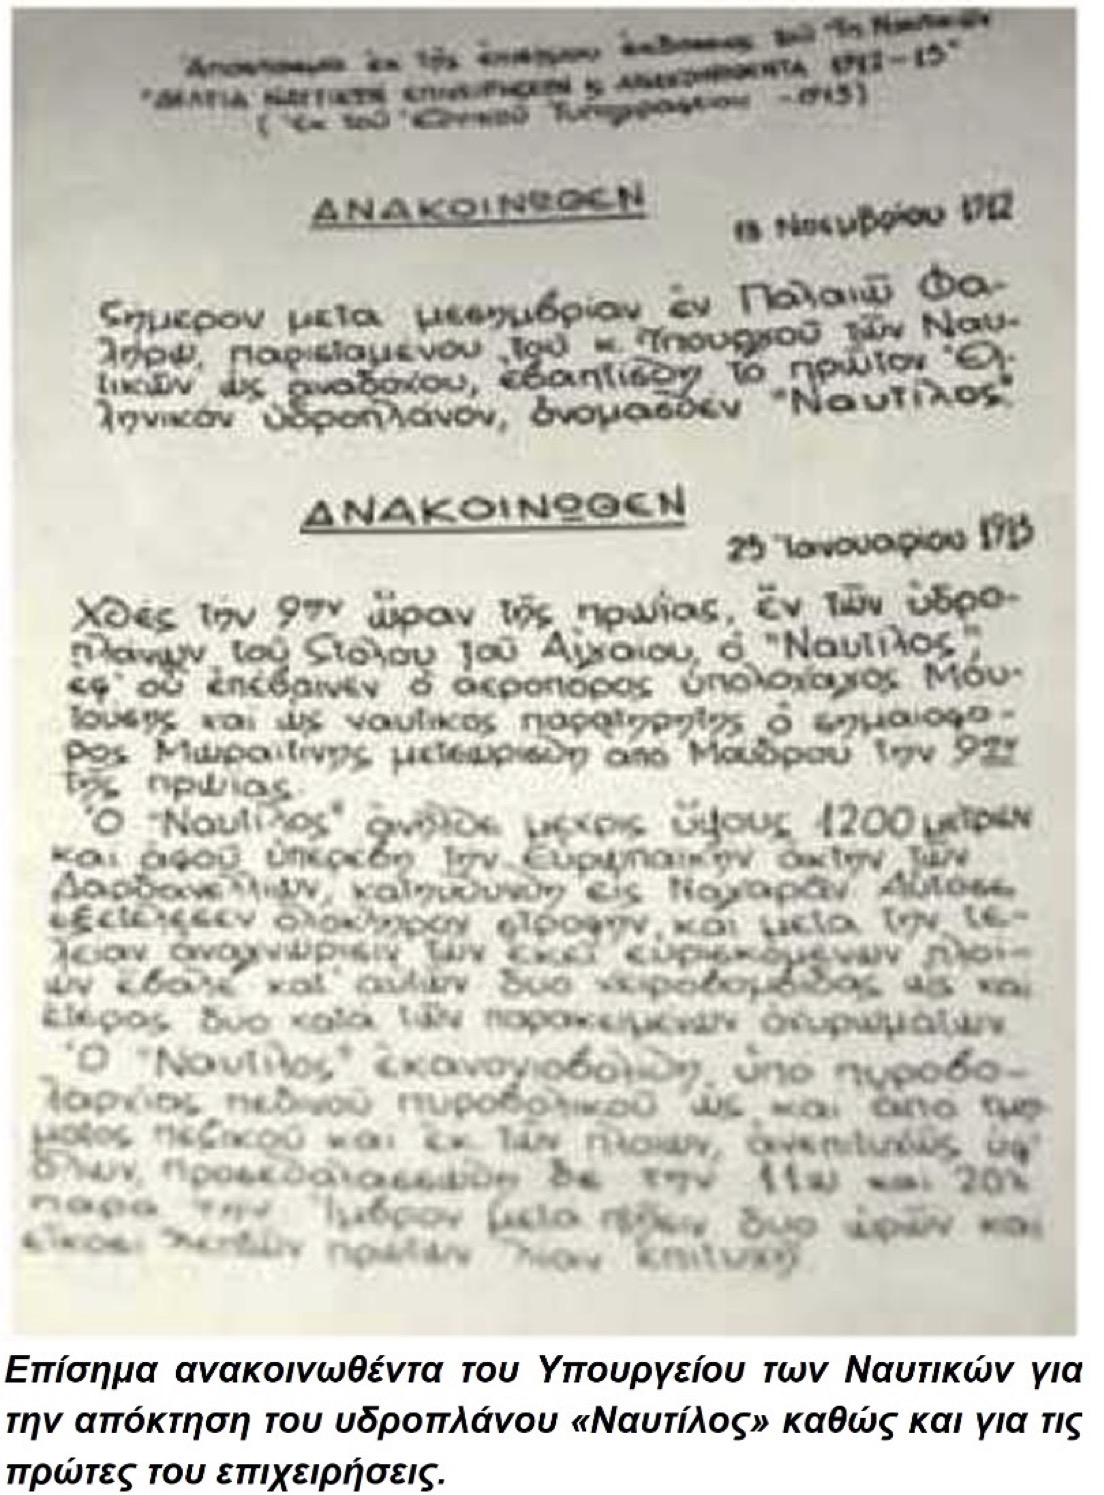 Ἀπόσπασμα ἐκ τῆς ἐπισήμου ἐκδόσεως τοῦ Ναυτικῶν
"ΔΕΛΤΙΑ ΝΑΥΤΙΚΩΝ ΕΠΙΧΕΙΡΗΣΕΩΝ ΑΝΑΚΟΙΝΩΘΕΝΤΑ 1912-13"
(Ἐκ τοῦ Ἐθνικοῦ Τυπογραφείου -1913)
ΑΝΑΚΟΙΝΩΘΕΝ
Νοεμβρίου 1912
Σήμερον μετὰ μεσημβρίαν ἐν Παλαιῷ Φα-
λήρῳ, παρισταμένου τοῦ κ. Ὑπουργοῦ τῶν Ναυ-
τικῶν ὡς ἀναδόχου, ἐβαπτίσθη τὸ πρῶτον Ἑλ-
ληνικὸν ὑδροπλάνον, ὀνομασθὲν "Ναυτίλος".
ΑΝΑΚΟΙΝΩΘΕΝ
25 Ἰανουαρίου 1913
Χθὲς τὴν 9ην ὥραν τῆς πρωίας, ἓν τῶν ὑδρο-
πλάνων τοῦ Στόλου τοῦ Αἰγαίου, ὁ "Ναυτίλος",
ἐφ' οὗ ἐπέβαινεν ὁ ἀεροπόρος ὑπολοχαγὸς Μου-
τούσης καὶ ὡς ναυτικὸς παρατηρητὴς ὁ σημαιοφό-
ρος Μωραϊτίνης μετεωρίσθη ἀπὸ Μούδρου τὴν 9ην
τῆς πρωίας.
Ὁ "Ναυτίλος" ἀνῆλθε μέχρις ὕψους 1200 μέτρων
καὶ ἀφοῦ ὑπερέβη τὴν Εὐρωπαϊκὴν ἀκτὴν τῶν
Δαρδανελλίων, κατηυθύνθη εἰς Ναγαρᾶν. Αὐτόσε
ἐξετέλεσεν ὁλόκληρον στροφήν, καὶ μετὰ τὴν τε-
λείαν ἀναγνώρισιν τῶν ἐκεῖ εὑρισκομένων πλοί-
ων ἔβαλε κατ' αὐτῶν δύο χειροβομβίδας ὡς καὶ
ἑτέρας δύο κατὰ τῶν παρακειμένων ὀχυρωμάτων.
Ὁ "Ναυτίλος" ἐκανονιοβολήθη ὑπὸ πυροβο-
λαρχίας πεδινοῦ πυροβολικοῦ ὡς καὶ ἀπὸ τμή-
ματος πεζικοῦ καὶ ἐκ τῶν πλοίων, ἀνεπιτυχῶς ὑφ'
ὅλων, προσεθαλασσώθη δὲ τὴν 11ην καὶ 20λ
παρὰ τὴν Ἴμβρον μετὰ πτῆσιν δύο ὡρῶν καὶ
εἴκοσι λεπτῶν πρώτων λίαν ἐπιτυχῆ.
Επίσημα ανακοινωθέντα του Υπουργείου των Ναυτικών για
την απόκτηση του υδροπλάνου «Ναυτίλος» καθώς και για τις
πρώτες του επιχειρήσεις.